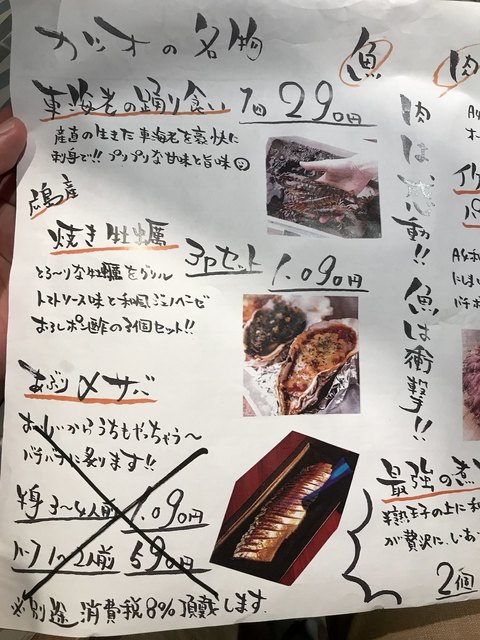 カツオの名物
魚
肉
車海老の踊り食い 1回 290円
産直の生きた車海老を豪快に
刺身で!! プリプリな甘味と旨味
広島産
焼き牡蠣 3Pセット 1.090円
とろ〜りな牡蠣をグリル
トマトソース味と和風ジェノベーゼ
おろしポン酢の3個セット!!
あぶり〆サバ
おいしいからうちもやっちゃう〜
バチバチに炙ります!!
半身3〜4人前 1.090円
ハーフ1〜2人前 590円
※別途 消費税8%頂戴します.
肉は感動!! 魚は衝撃!!
最強の煮
半熟玉子の上に和
が贅沢に、
2個